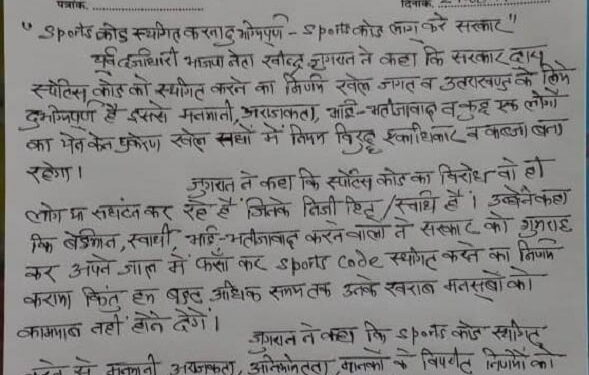 पत्रांक.................... दिनांक....................
"Sports कोड स्थगित करना दुर्भाग्यपूर्ण - Sports कोड लागू करे सरकार"
पूर्व दर्जाधारी भाजपा नेता रवीन्द्र जुगरान ने कहा कि सरकार द्वारा
स्पोर्टस कोड को स्थगित करने का निर्णय खेल जगत व उत्तराखण्ड के लिये
दुर्भाग्यपूर्ण है इससे मनमानी, अराजकता, भाई-भतीजावाद व कुछ एक लोगों
का येन केन प्रकरेण खेल संघों में नियम विरुद्ध एकाधिकार व कब्जा बना
रहेगा।
जुगरान ने कहा कि स्पोर्टस कोड का विरोध वो ही
लोग या संगठन कर रहे हैं जिनके निजी हित/स्वार्थ हैं। उन्होंने कहा
कि बेईमान, स्वार्थी, भाई-भतीजावाद करने वालों ने सरकार को गुमराह
कर अपने जाल में फंसा कर sports code स्थगित करने का निर्णय
कराया किंतु हम बहुत अधिक समय तक उनके खराब मनसूबों को
कामयाब नहीं होने देंगें।
जुगरान ने कहा कि sports कोड स्थगित
करने से मनमानी अराजकता, अनियमितता, मानकों के विपरीत निर्णयों को